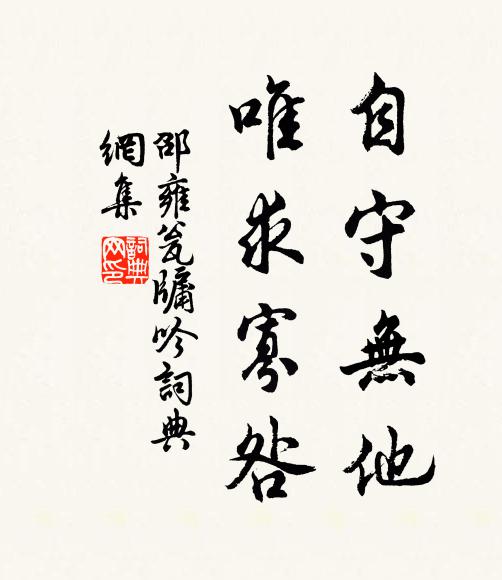 自守無他
唯求寡咎
邵雍瓮牖吟詞典
網集
詞典網印